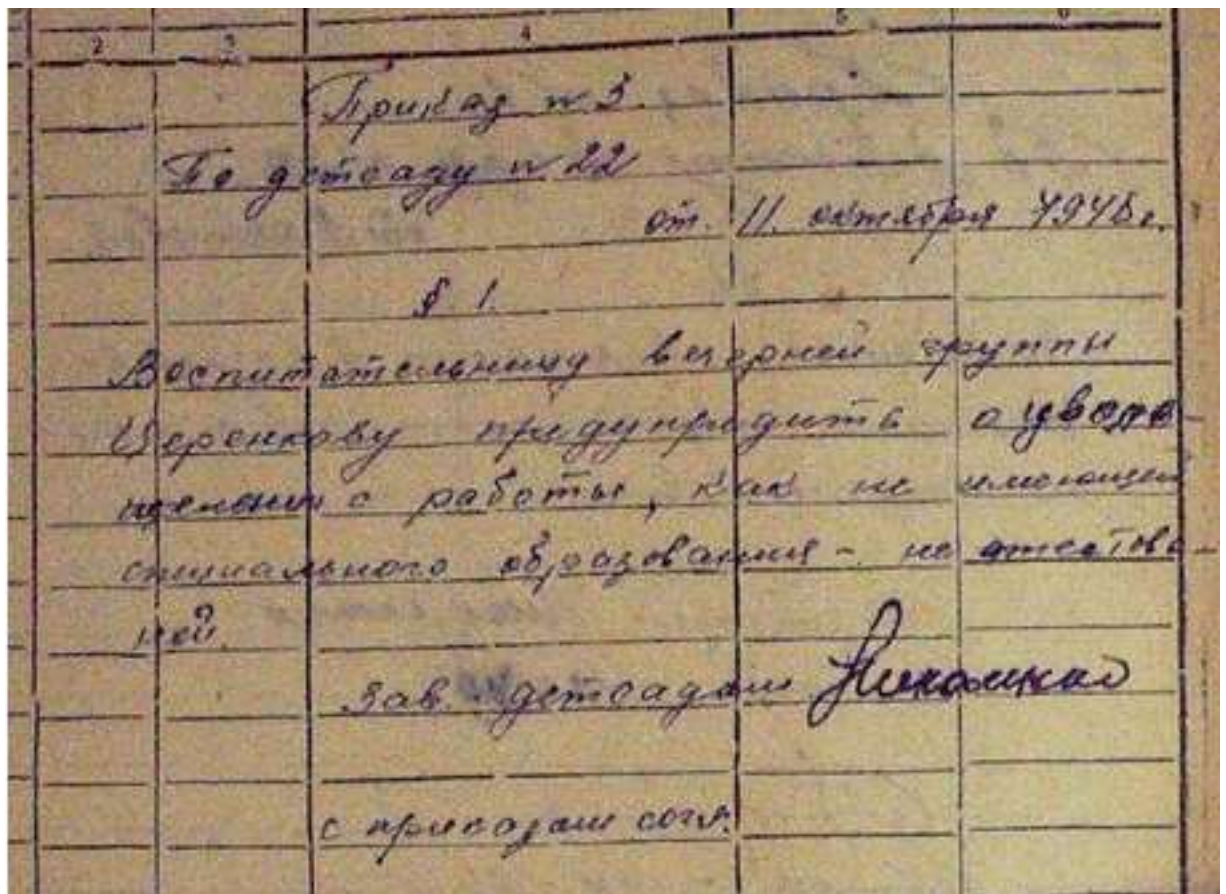 2 3 4 5 6
Приказ № 3
По детсаду № 22
от. 11. октября 1948 г.
§ 1.
Воспитательницу вечерней группы
Церенкову придупридить о
с работы, как не имеющей
специального образования - не атестова
ной.
Зав. детсадом
с приказам согл.